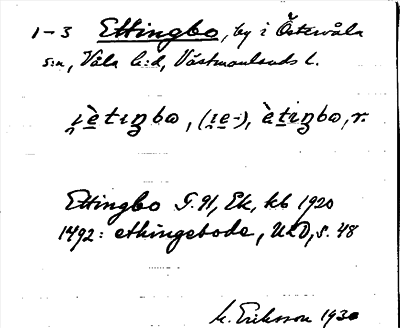 1–3 Ettingbo, by i Östervåla
s:n, Våla h:d, Västmanlands l.
i̯ètɩŋbω, (ɩe-), ètɩŋbω, r.
Ettingbo G.91, Ek, kb 1920
1492: ethingebode, ULD, s. 48
M. Eriksson 1930